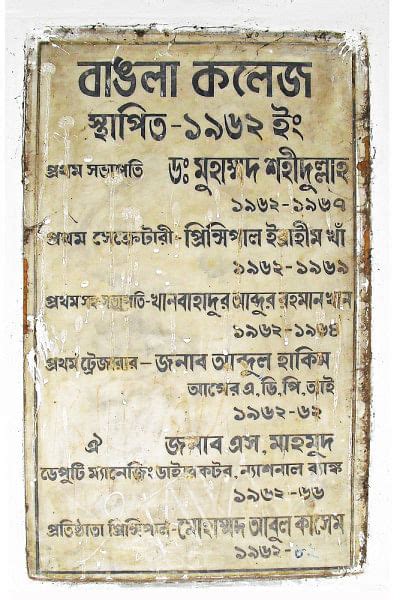 বাঙলা কলেজ
স্থাপিত-১৯৬২ ইং
প্রথম সভাপতি ডঃ মুহাম্মদ শহীদুল্লাহ
১৯৬২-১৯৬৭
প্রথম সেক্রেটারী-প্রিন্সিপাল ইব্রাহীম খাঁ
১৯৬২-১৯৬৯
প্রথম সহ-সভাপতি-খানবাহাদুর আব্দুর রহমান খান
১৯৬২-১৯৬৪
প্রথম ট্রেজারার-জনাব আব্দুল হাকিম
আগের এ,ডি,পি,আই
১৯৬২-৬২
ঐ জনাব এস, মাহমুদ
ডেপুটি ম্যানেজিং ডাইরেকটর, ন্যাশনাল ব্যাঙ্ক
১৯৬২-৬৬
প্রতিষ্ঠাতা প্রিন্সিপাল-মোহাম্মদ আবুল কাসেম
১৯৬২-